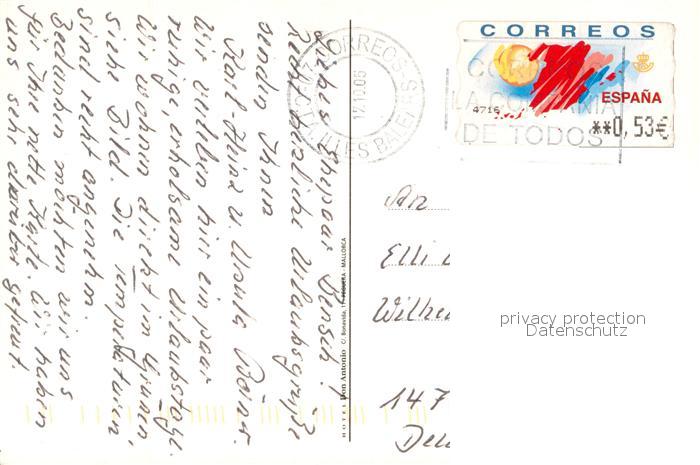 CORREOS
ESPAÑA
4716
**0,53€
CORREOS
ILLES BALEARS
LA
DE TODOS
Liebes Ehepaar
Recht herzliche Urlaubsgrüße
senden Ihnen
Karl-Heinz u. Ursula
Wir verleben hier ein paar
ruhige, erholsame Urlaubstage.
Wir wohnen direkt im Grünen,
siehe Bild. Die Temperaturen
sind recht angenehm.
Bedanken möchten wir uns
für Ihre nette Karte. Wir haben
uns sehr darüber gefreut.
HOTEL Don Antonio C. Bonavida, 11 - PEGUERA - MALLORCA
An
Elli
147
privacy protection
Datenschutz